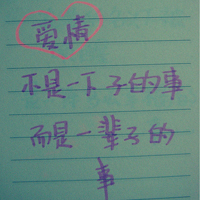 爱情
不是一下子的事
而是一辈子的
事